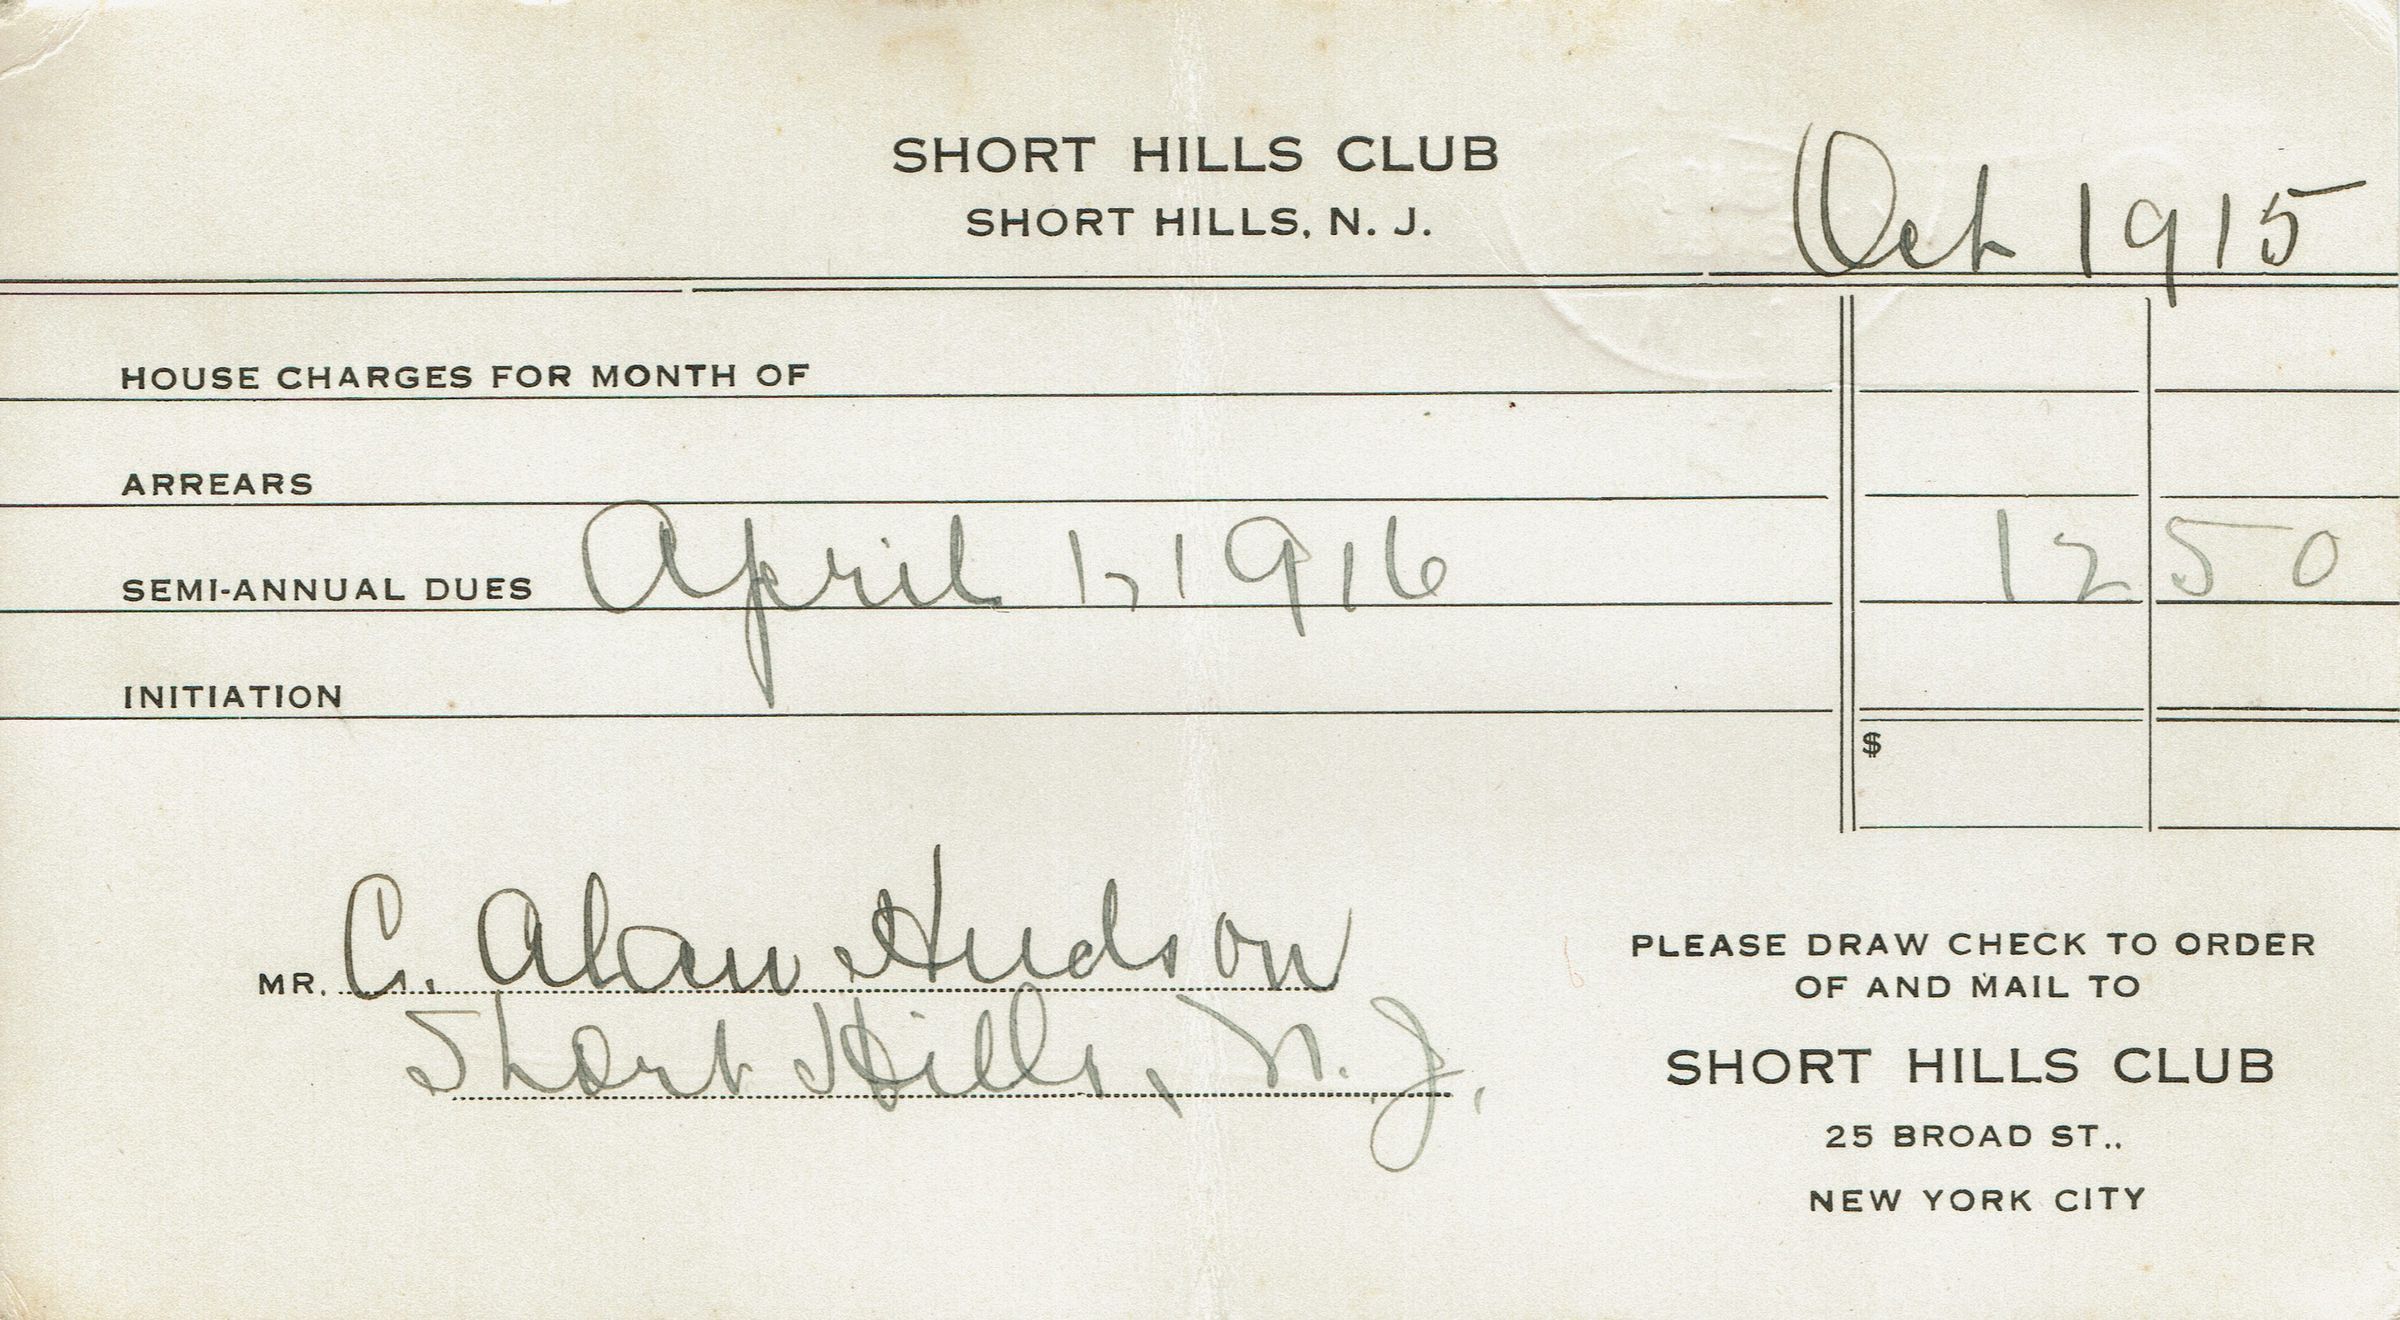 SHORT HILLS CLUB
SHORT HILLS, N. J.
Oct 1915
HOUSE CHARGES FOR MONTH OF
ARREARS
SEMI-ANNUAL DUES April 1, 1916 12 50
INITIATION
$
MR. C. Alan Hudson
Short Hills, N. J.
PLEASE DRAW CHECK TO ORDER
OF AND MAIL TO
SHORT HILLS CLUB
25 BROAD ST..
NEW YORK CITY